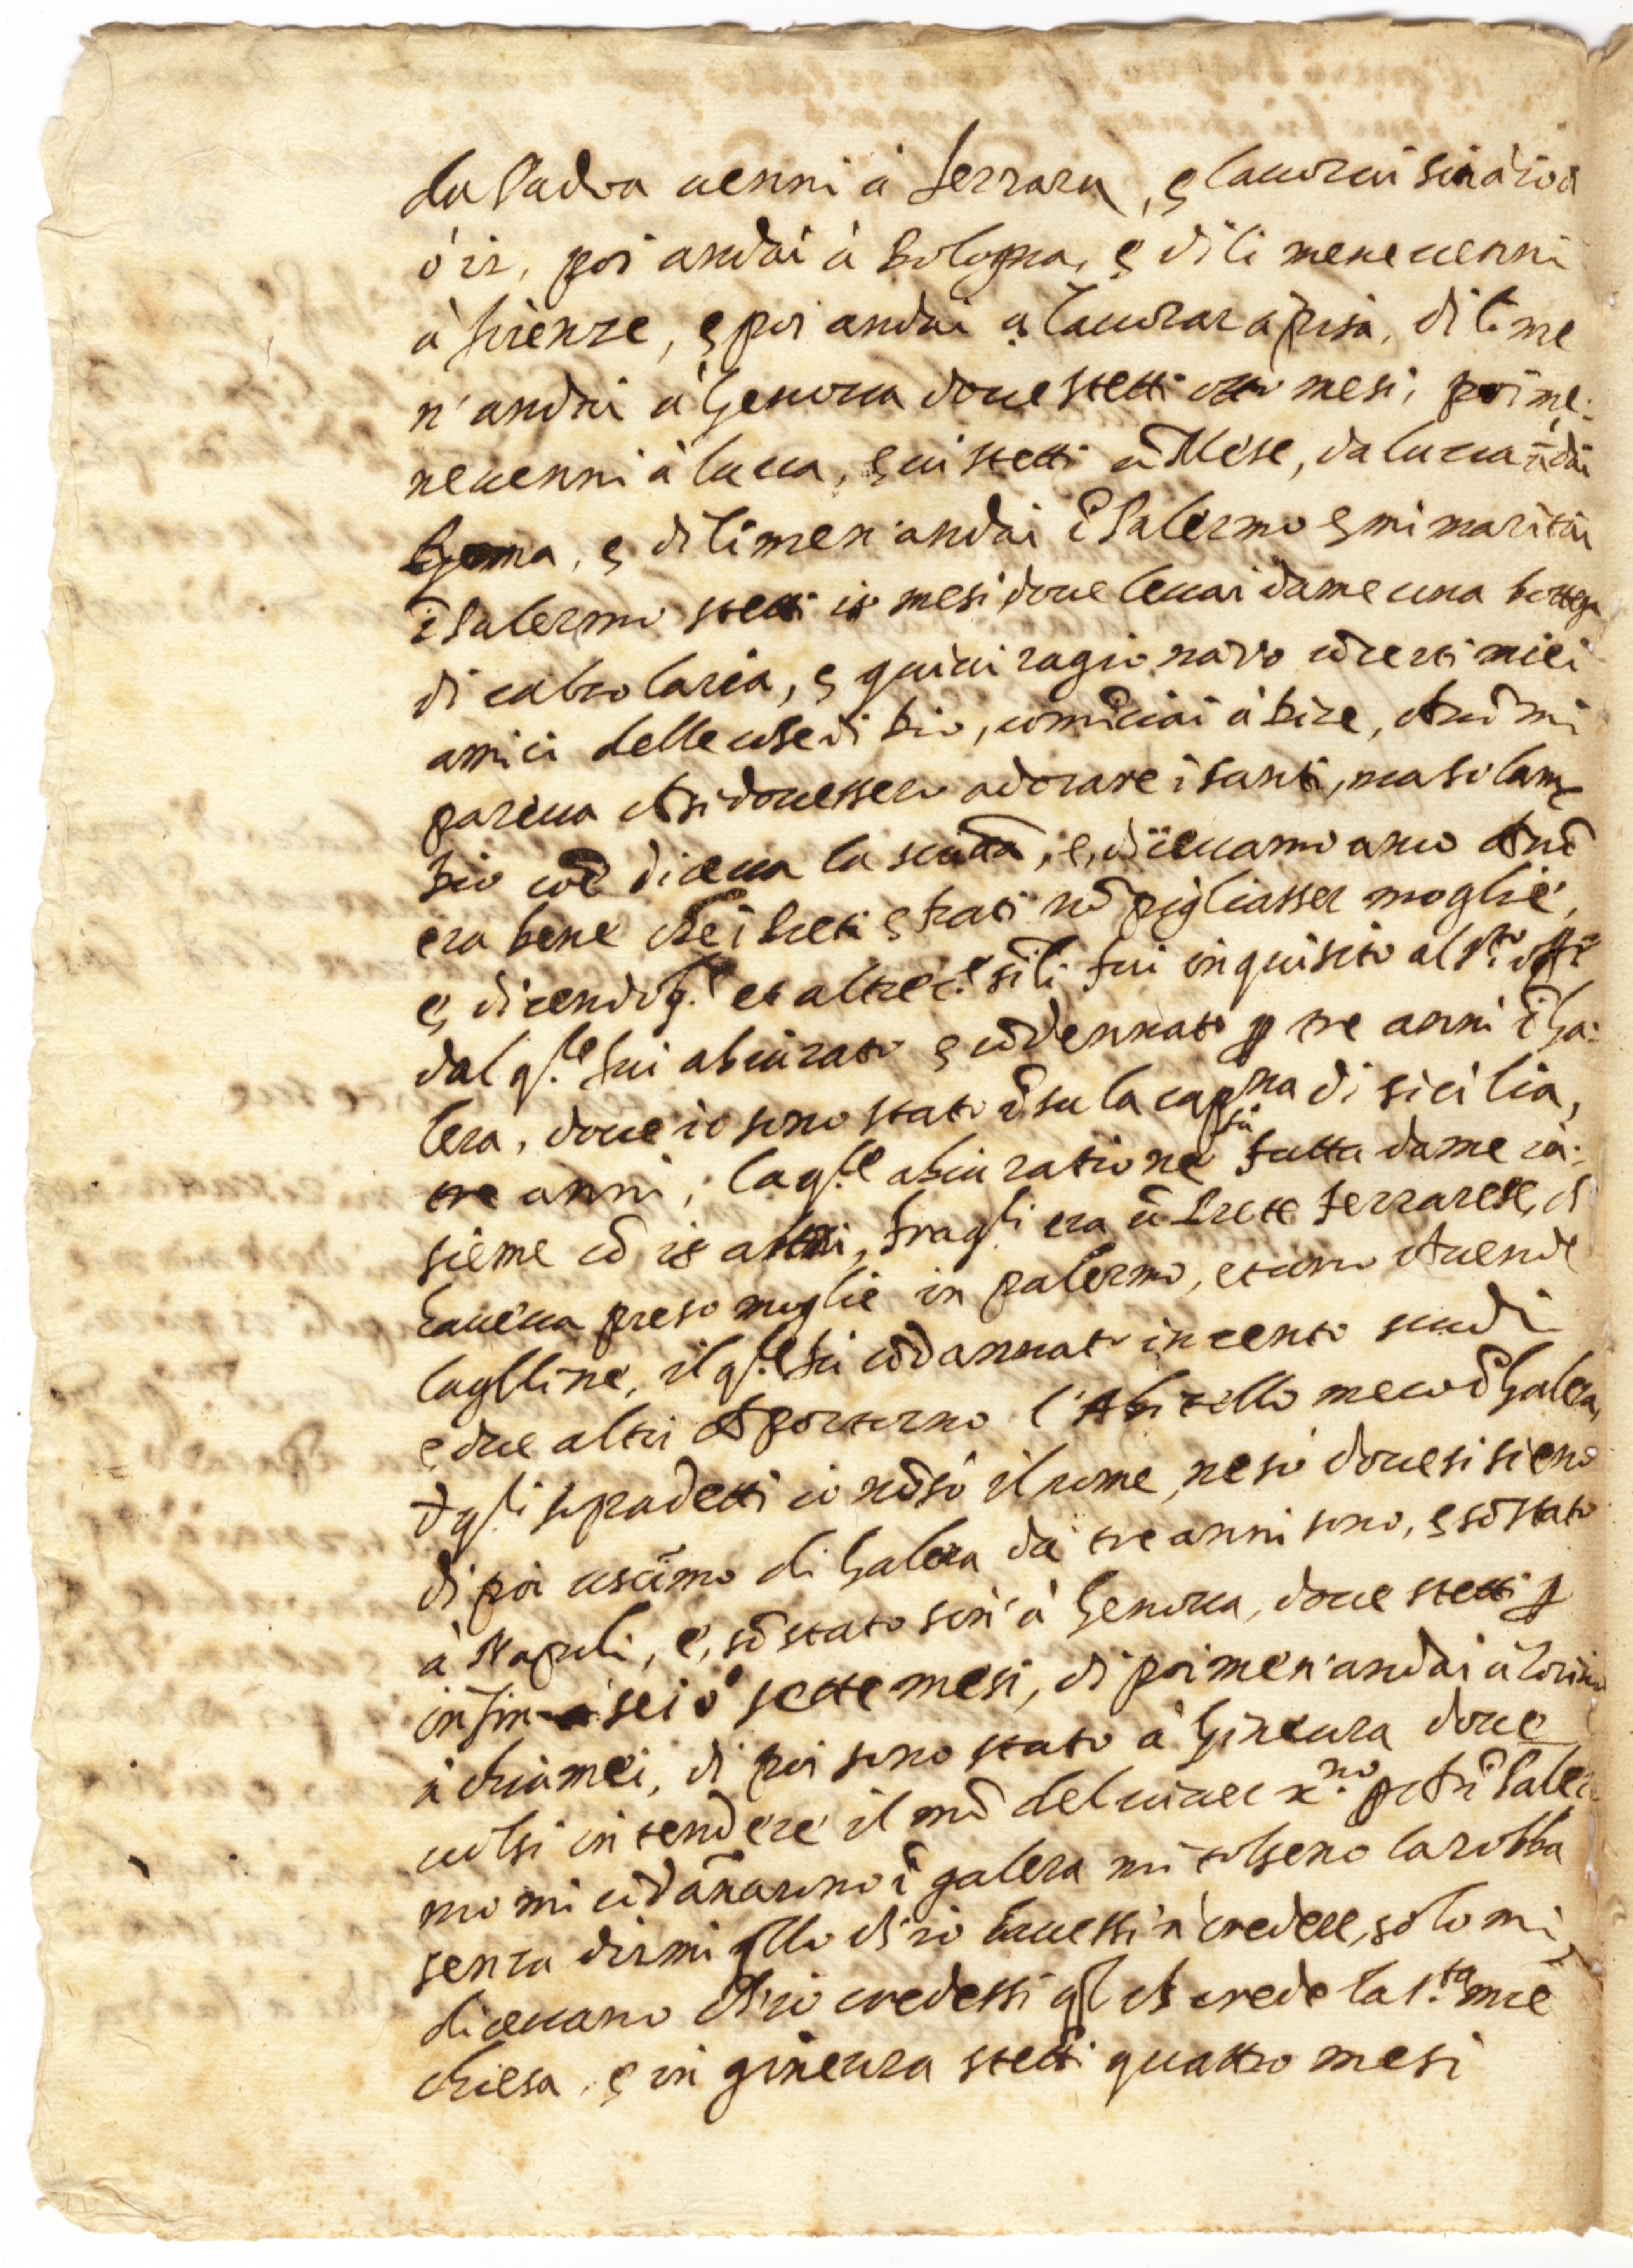 da Padoa uenni à ferrara, e lauorai sin à 10 ò
ò 12, poi andai à Bologna, e di li me ne uenni
à firenze, e poi andai a lauorar à pisa, di li me
n'andai à Genoua doue stetti otto mesi, poi me
ne uenni à lucca, e ui stetti ũ Mese, da lucca ãdai
Roma, e di li me n'andai ĩ Palermo e mi maritai
ĩ Palermo stetti 18 mesi doue leuai da me una bottega
di calzolaria, e quiui ragionãdo cõ certi miei
amici delle cose di Dio, cominciai à dire, che nõ mi
pareua che si douessero adorare i santi, ma solamẽ
Dio coẽ diceua la scritta, e, diceuamo anco che nõ
era bene che i Preti e frati nõ pigliasser moglie,
e, dicendo q.e et altre c.e sĩli fui inquisito al s.to offi.o
dal q.le fui abiurato e cõdennato p tre anni ĩ ga:
lera, doue io sono stato ĩ su la cap.na di sicilia,
tre anni, la q.le abiuratione fù fatta da me in:
sieme cõ 18 altri, fra q.li era ũ Prete ferrarese, ch
haueua preso moglie in palermo, et uno che uende
le galline, il q.le fu cõdannato in cento scudi
e due altri che portorno l'Abitello meco ĩ Galera,
d q.li sopradetti io nõ sò il nome, ne sò doue si sieno
di poi uscĩmo di Galera da tre anni sono, e sõ stato
à Napoli, e, sõ stato sin' à Genoua, doue stetti p
infin sei ò sette mesi, di poi me n'andai à Torino
à chiamei, di poi sono stato à Gineura doue
uolsi intendere il mõ del uiuer x.no pche ĩ Paler
mo mi cõdãnarono ĩ galera mi tolseno la robba
senza dirmi qllo ch'io hauessi à credere, solo mi
diceuano ch'io credessi ql ch crede la s.ta mre
chiesa, e in gineura stetti quattro mesi